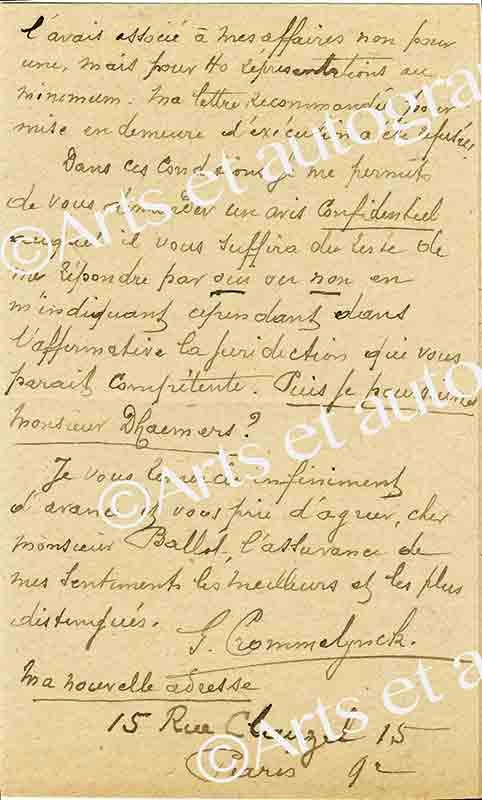 l'avais associé à mes affaires non pour
une, mais pour 40 représentations au
minimum. Ma lettre recommandée pour
mise en demeure d'exécution a été refusée.
Dans ces conditions je me permets
de vous demander un avis Confidentiel
auquel il vous suffira du reste de
me répondre par oui ou non en
m'indiquant cependant dans
l'affirmative la juridiction qui vous
parait compétente. Puis je poursuivre
Monsieur Dhaemers ?
Je vous remercie infiniment
d'avance et vous prie d'agréer, cher
monsieur Ballot, l'assurance de
mes sentiments les meilleurs et les plus
distingués.
G. Crommelynck.
Ma nouvelle adresse
15 Rue Clauzel 15
Paris 9e
©Arts et autographes